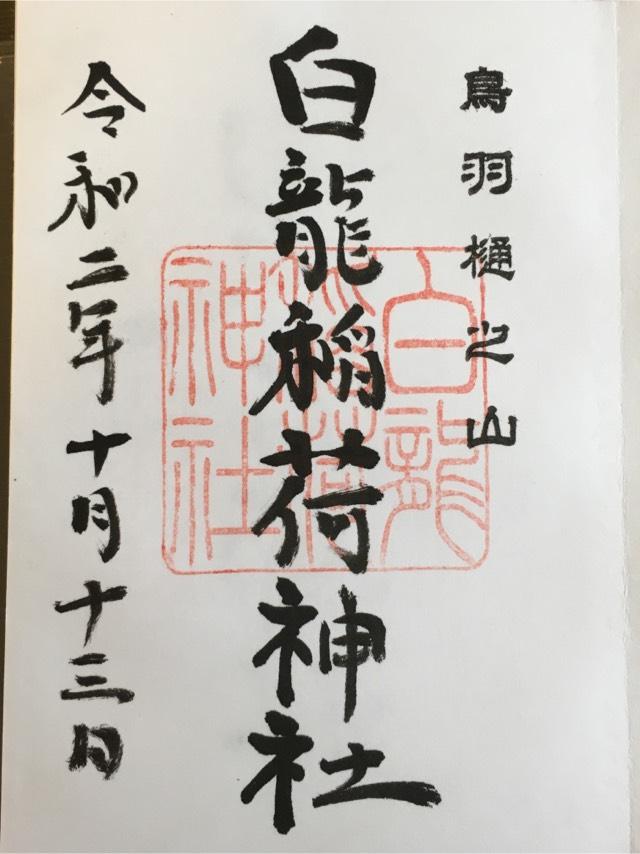 鳥羽樋之山
白龍稲荷神社
令和二年十月十三日
白龍
稲荷
神社